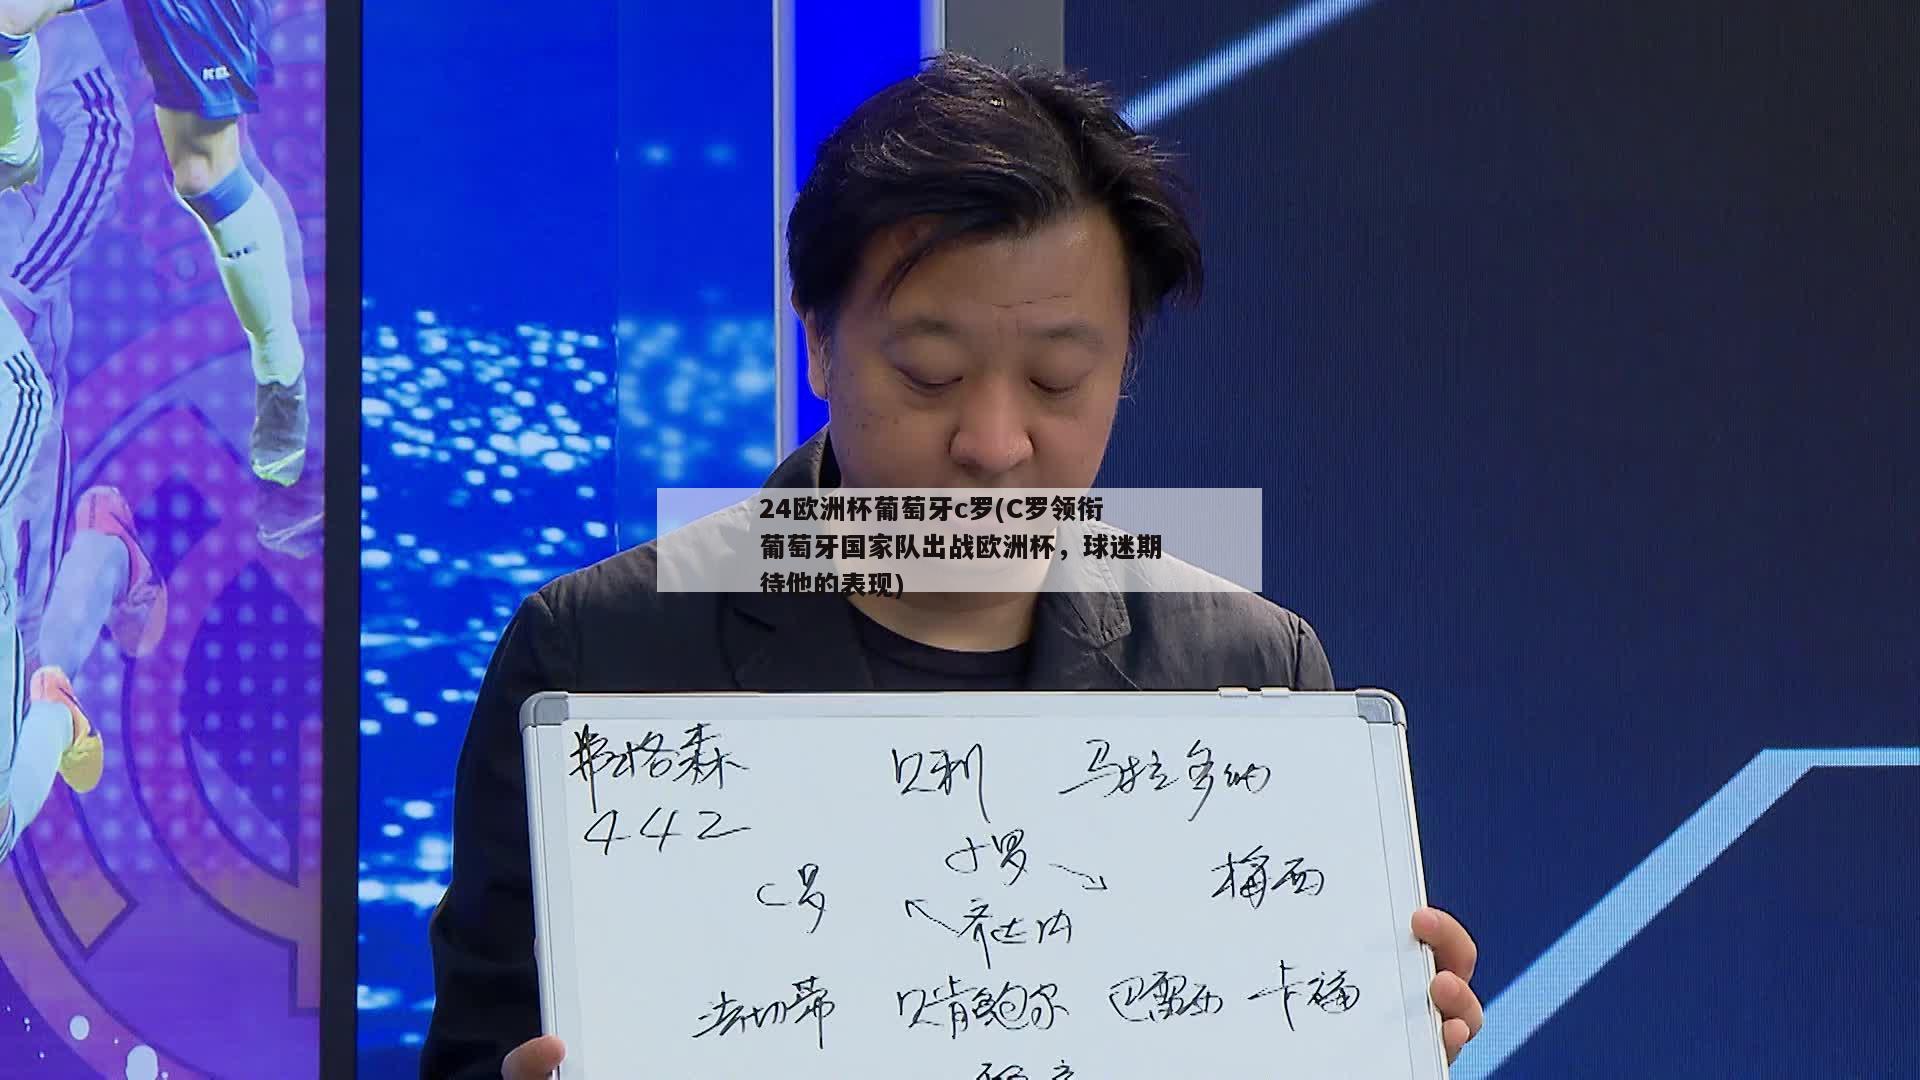 24欧洲杯葡萄牙c罗(C罗领衔
葡萄牙国家队出战欧洲杯，球迷期
待他的表现)
弗格森 贝利 马拉多纳
442
小罗
C罗 梅西
齐达内
法切蒂 贝肯鲍尔 巴雷西 卡福